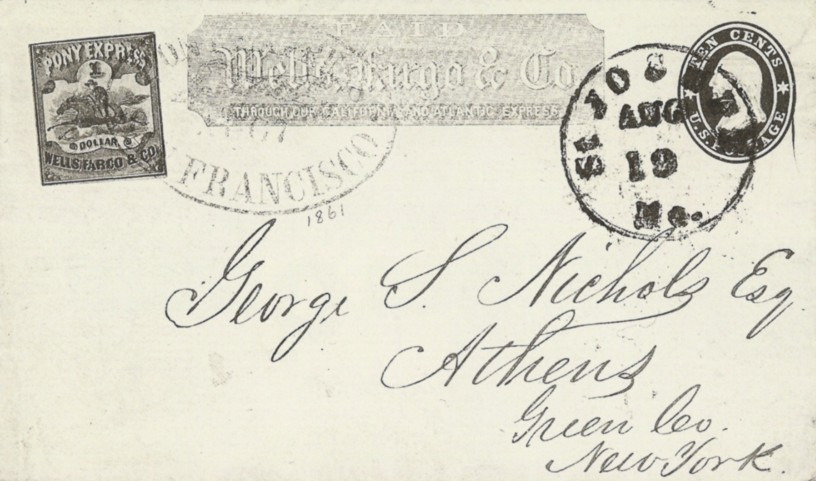 PONY EXPRESS
1
DOLLAR
WELLS FARGO & CO.
PAID
Wells, Fargo & Co.
THROUGH OUR CALIFORNIA AND ATLANTIC EXPRESS.
FRANCISCO
1861
ST JOSEPH
AUG
19
Mo.
TEN CENTS
U.S. POSTAGE
George S. Nichols Esq
Athens
Green Co.
New York.